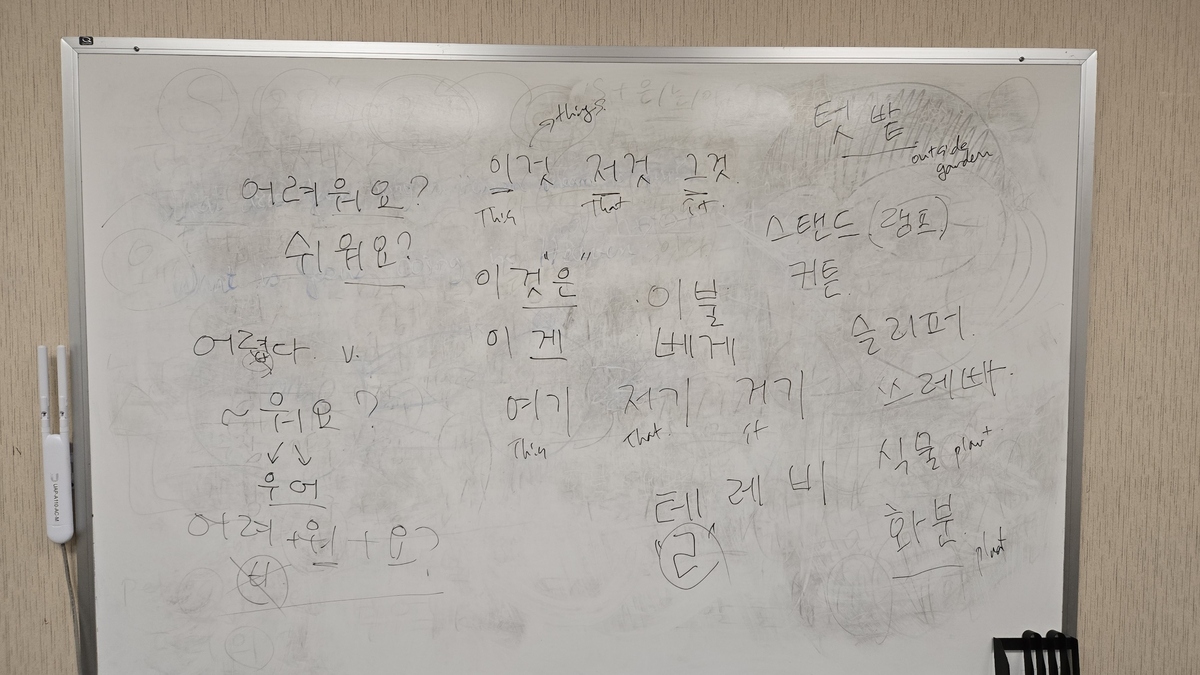 어려워요?
쉬워요?
어렵다. v.
~ 워요?
우어
어려+워+요?
ㅂ
things
이것 저것 그것
This That it
이것"은"
이게
이불
베게
여기 저기 거기
This That it
텔레비
"ㄹ"
텃밭
outside garden
스탠드(램프)
커튼
슬리퍼
쓰레빠
식물 plant
화분 plant